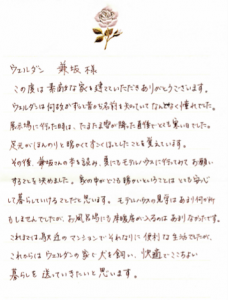 ウェルダン 兼坂 様
この度は素敵な家を建てていただきありがとうございます。
ウェルダンは何故かずい分前から名前を知っていてなんとなく憧れでした。
展示場に行った時は、たまたま雪が降った直後でとても寒い日でした。
足元がほんのりと暖かくて赤くほっとしたことを覚えています。
その後、兼坂さんの本を読み、真にもモデルハウスに行ってみてお願い
することを決めました。家の中がどこも暖かいということはとても安心
して暮らしていけることだと思います。モデルハウスの見学はあまり何か所
もしませんでしたが、お風呂場にも床暖房がつるのはあまりなかったです。
これまでは駅近のマンションでそれなりに便利な生活でしたが、
これからはウェルダンの家で犬を飼い、快適でここちよい
暮らしを送っていきたいと思います。